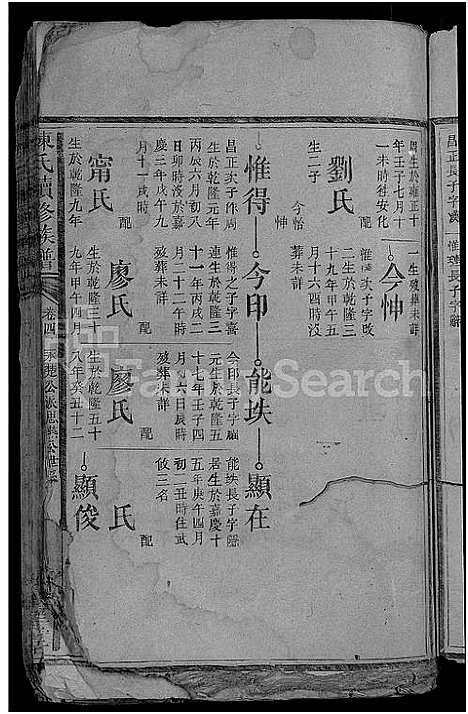 昌正長子字
惟理長子字
周生於雍正十
年壬子七月十
一未時往安化
劉氏
配
生二子
今怡
今忡
一生歿葬未詳
今忡
惟 次子字改
二生於乾隆三
十九年甲午五
月十六酉時歿
葬未詳
惟得
今印
能垁
顯在
昌正次子作周
生於乾隆元年
丙辰六月初八
日卯時歿於嘉
慶三年戊午九
月十一戌時
甯氏
配
生於乾隆九年
惟得之子字
連生於乾隆三
十一年丙戌二
月二十二戌時
歿葬未詳
廖氏
配
生於乾隆三十
九年甲午四月
今印長子字
元生於乾隆五
十七年壬子四
月初六日辰時
歿葬未詳
廖氏
配
生於乾隆五十
八年癸丑十二
能垁長子字隱
居生於嘉慶十
五年庚午四月
初二丑時住武
攸三名
氏
配
顯俊
陳氏續修族譜
卷四
FamilySearch